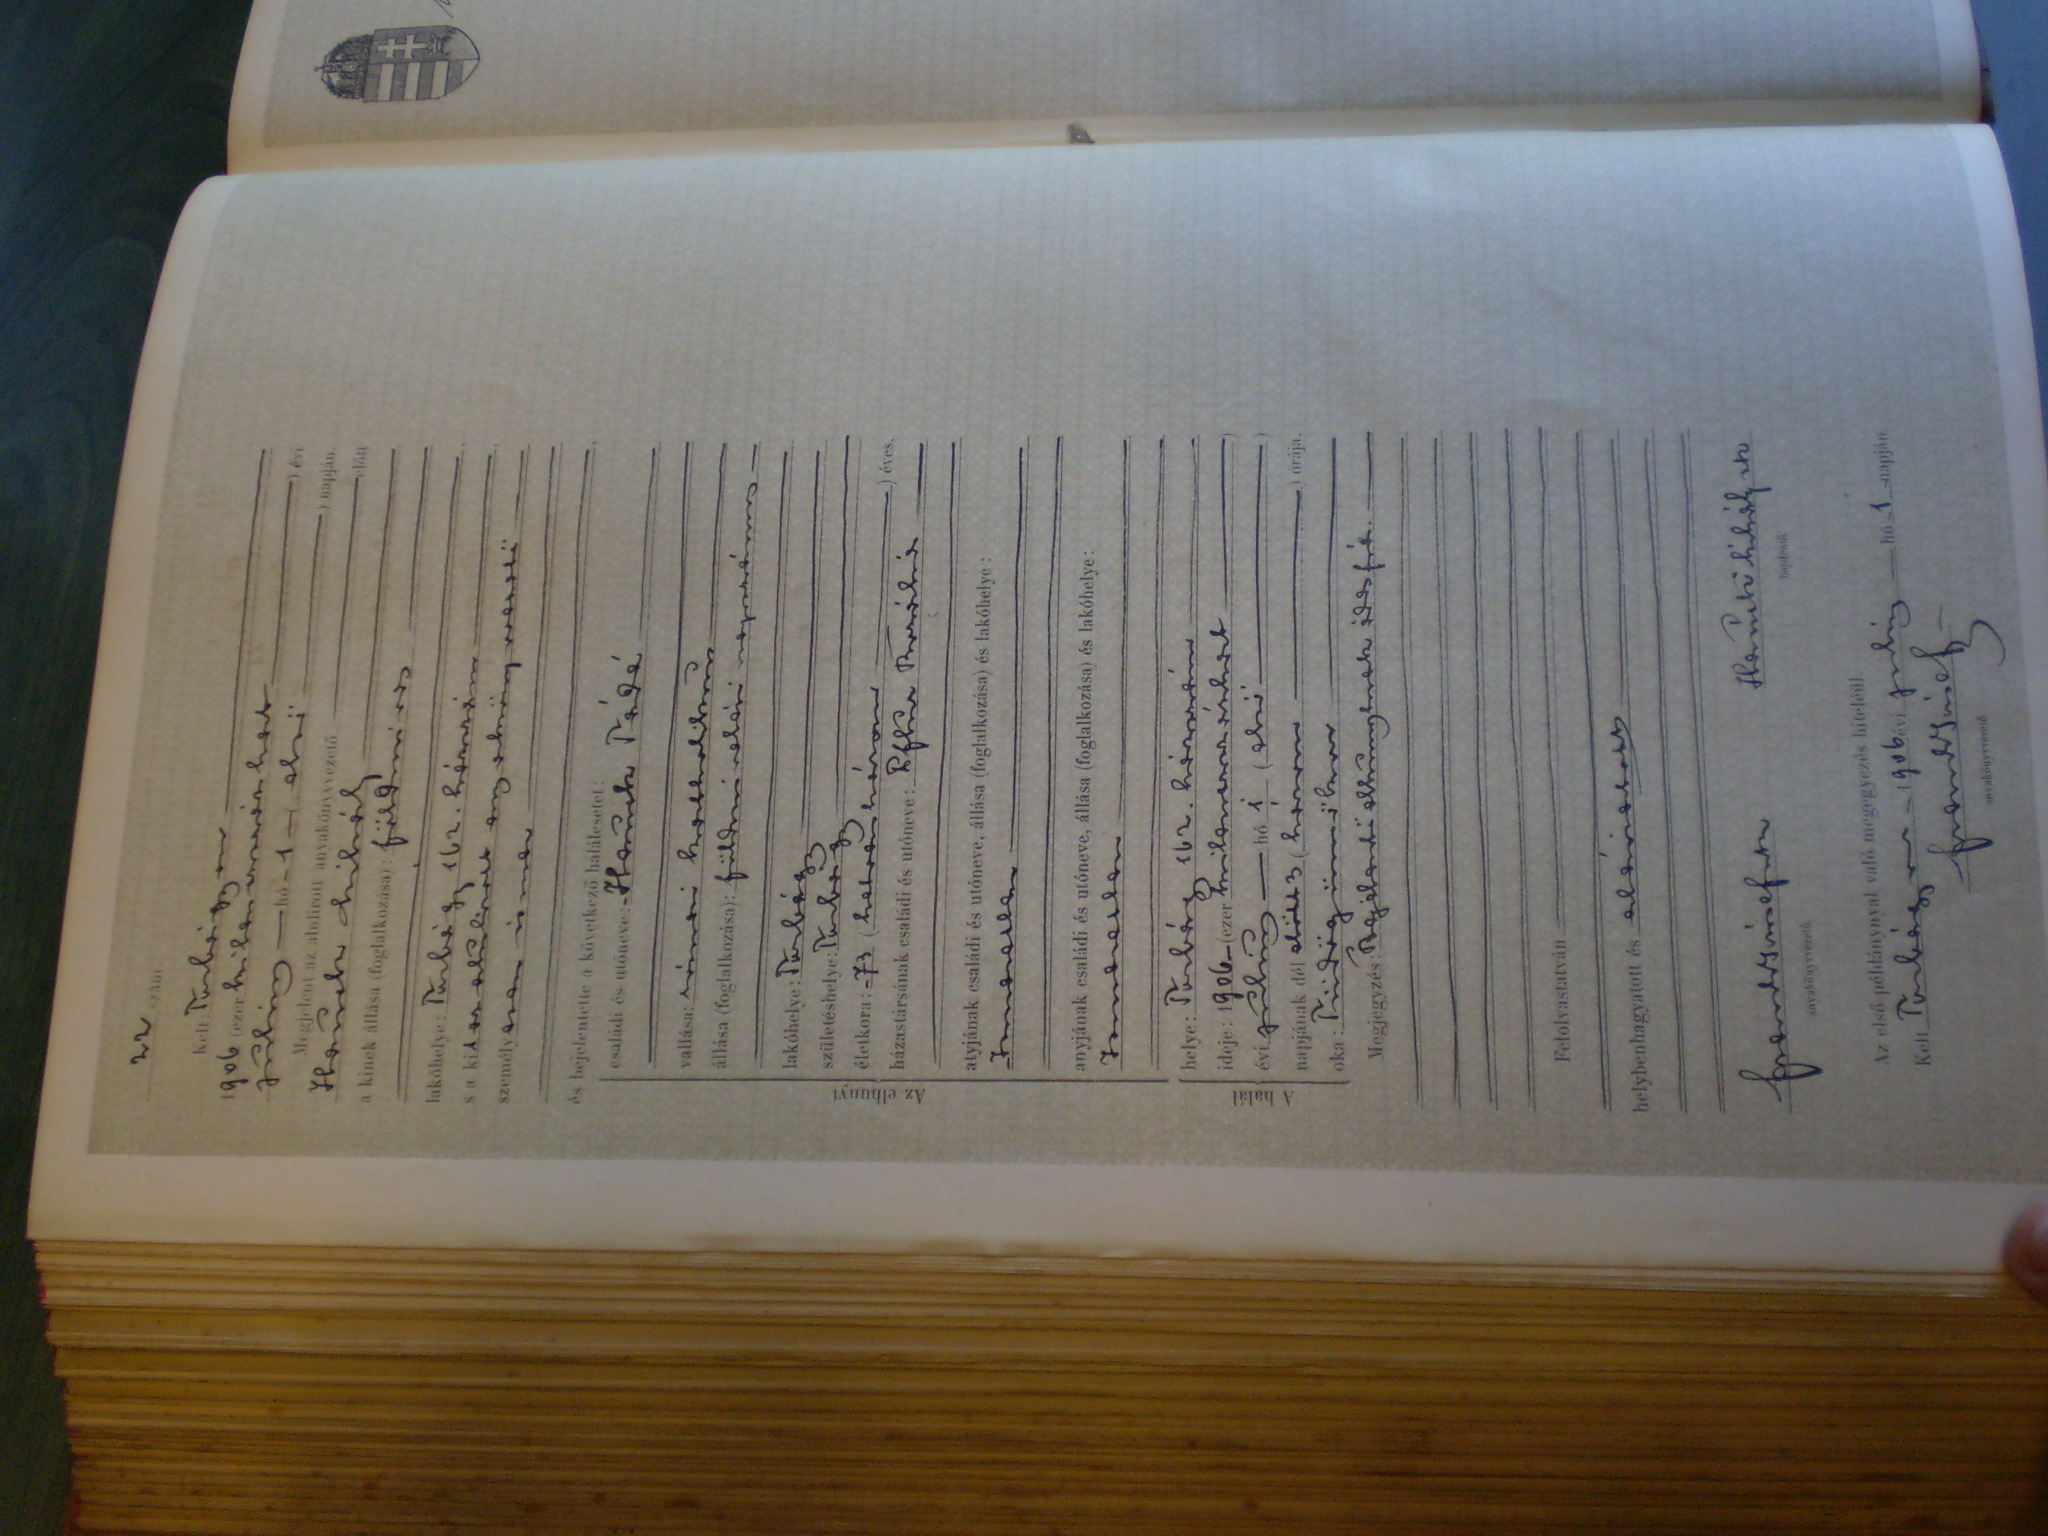 22 szám
Kelt Torbágyon
1906 (ezer kilencszázhat
július hó 1 (első) évi
) napján.
Megjelent az alulirott anyakönyvvezető előtt
Hanusek Mihály
a kinek állása (foglalkozása): földmíves
lakóhelye: Torbágy 162. házszám
s a kit az alulirott anyakönyvvezető
személyesen ismer
és bejelentette a következő halálesetet:
Az elhunyt
családi és utóneve: Hanusek Tádé
vallása: római katholikus
állása (foglalkozása): földmívelési napszámos
lakóhelye: Torbágy
születéshelye: Torbágy
életkora: 73 (hetvenhárom) éves,
házastársának családi és utóneve: Borbála
atyjának családi és utóneve, állása (foglalkozása) és lakóhelye:
Ismeretlen
anyjának családi és utóneve, állása (foglalkozása) és lakóhelye:
Ismeretlen
A halál
helye: Torbágy 162. házszám
ideje: 1906 (ezer kilencszázhat)
évi július hó 1 (első)
napjának dél előtt 3 (három) órája,
oka: Tüdőgümőkor
Megjegyzés: Bejelentő elhunytnak édes fia.
Felolvastatván
helybenhagyatott és aláíratott
anyakönyvvezető
Hanusek Mihály
bejelentő.
Az első példánynyal való megegyezés hiteléül.
Kelt Torbágyon 1906 évi július hó 1 napján
anyakönyvvezető